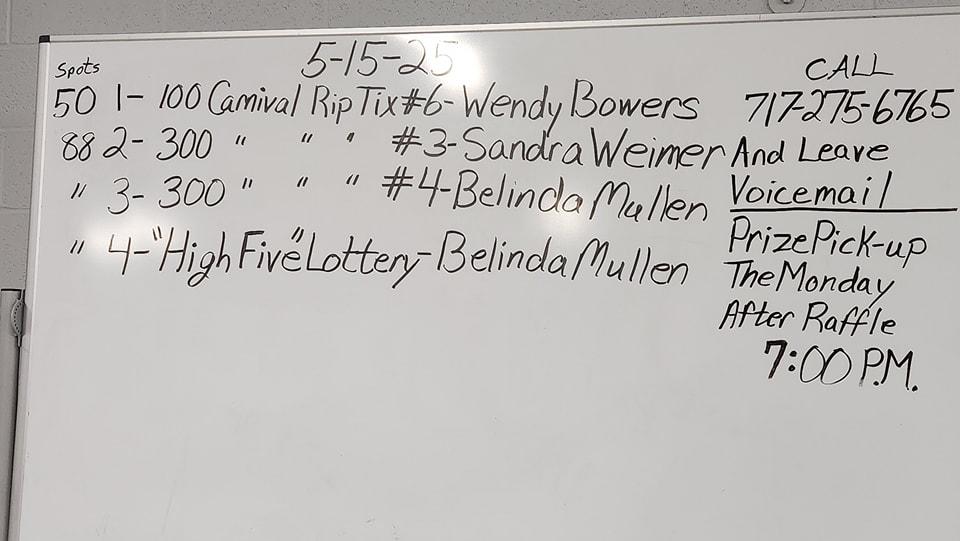 5-15-25
Spots
50 1- 100 Carnival Rip Tix #6- Wendy Bowers
88 2- 300 " " " #3- Sandra Weimer
" 3- 300 " " " #4- Belinda Mullen
" 4- "High Five" Lottery- Belinda Mullen
CALL
717-275-6765
And Leave
Voicemail
Prize Pick-up
The Monday
After Raffle
7:00 P.M.